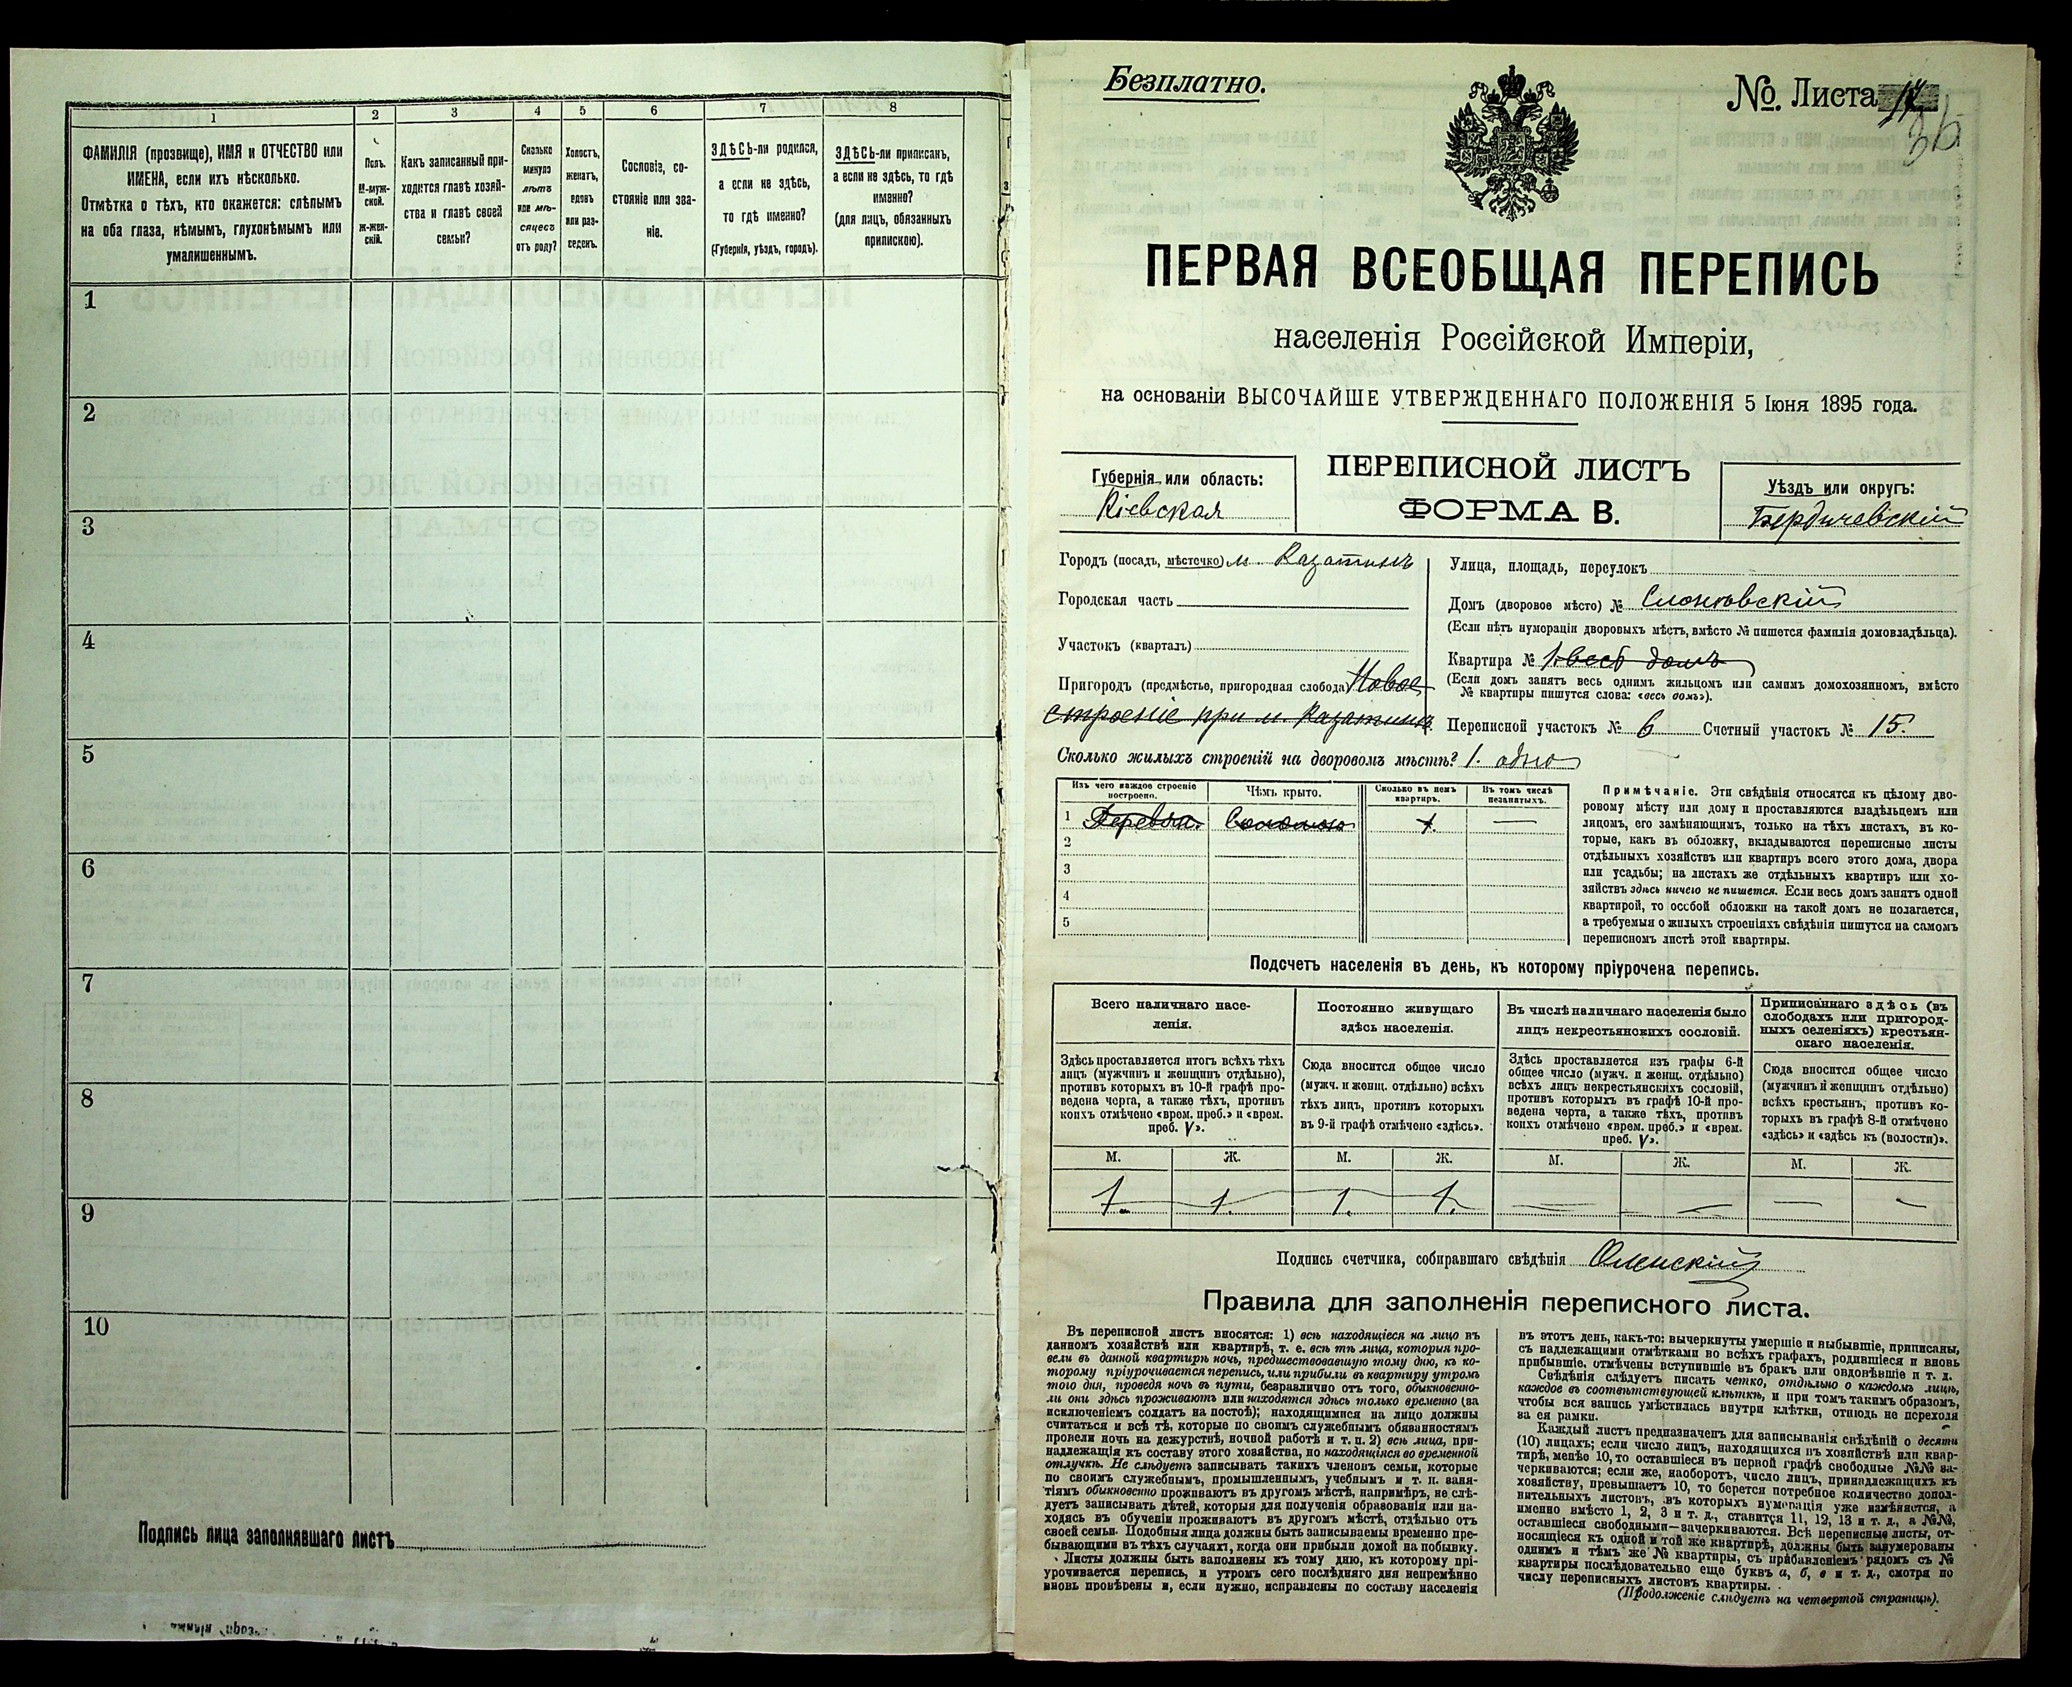 1
2
3
4
5
6
7
8
ФАМИЛІЯ (прозвище), ИМЯ и ОТЧЕСТВО или
ИМЕНА, если ихъ нѣсколько.
Отмѣтка о тѣхъ, кто окажется: слѣпымъ
на оба глаза, нѣмымъ, глухонѣмымъ или
умалишеннымъ.
Полъ.
М-муж-
ской.
ж-жен-
скій.
Какъ записанный при-
ходится главѣ хозяй-
ства и главѣ своей
семьи?
Сколько
минуло
лѣтъ
или мѣ-
сяцевъ
отъ роду?
Холостъ,
женатъ,
вдовъ
или раз-
веденъ.
Сословіе, со-
стояніе или зва-
ніе.
ЗДѢСЬ-ли родился,
а если не здѣсь,
то гдѣ именно?
(Губернія, уѣздъ, городъ).
ЗДѢСЬ-ли приписанъ,
а если не здѣсь, то гдѣ
именно?
(для лицъ, обязанныхъ
припискою).
1
2
3
4
5
6
7
8
9
10
Подпись лица заполнявшаго листъ
Безплатно.
№. Листа 17
36
ПЕРВАЯ ВСЕОБЩАЯ ПЕРЕПИСЬ
населенія Россійской Имперіи,
на основаніи ВЫСОЧАЙШЕ УТВЕРЖДЕННАГО ПОЛОЖЕНІЯ 5 Іюня 1895 года.
Губернія или область:
Кіевская
ПЕРЕПИСНОЙ ЛИСТЪ
ФОРМА В.
Уѣздъ или округъ:
Бердичевскій
Городъ (посадъ, мѣстечко) м. Казатинъ
Городская часть
Участокъ (кварталъ)
Пригородъ (предмѣстье, пригородная слобода) Новое
строеніе при м. Казатинѣ
Улица, площадь, переулокъ
Домъ (дворовое мѣсто) №
(Если нѣтъ нумераціи дворовыхъ мѣстъ, вмѣсто № пишется фамилія домовладѣльца).
Квартира № 1. весь домъ
(Если домъ занятъ весь однимъ жильцомъ или самимъ домохозяиномъ, вмѣсто
№ квартиры пишутся слова: «весь домъ»).
Переписной участокъ № 6 Счетный участокъ № 15.
Сколько жилыхъ строеній на дворовомъ мѣстѣ? 1. одно
Изъ чего каждое строеніе
построено.
Чѣмъ крыто.
Сколько въ немъ
квартиръ.
Въ томъ числѣ
незанятыхъ.
1 Деревян. Соломою 1. —
2
3
4
5
Примѣчаніе. Эти свѣдѣнія относятся къ цѣлому дво-
ровому мѣсту или дому и проставляются владѣльцемъ или
лицомъ, его замѣняющимъ, только на тѣхъ листахъ, въ ко-
торые, какъ въ обложку, вкладываются переписные листы
отдѣльныхъ хозяйствъ или квартиръ всего этого дома, двора
или усадьбы; на листахъ же отдѣльныхъ квартиръ или хо-
зяйствъ здѣсь ничего не пишется. Если весь домъ занятъ одной
квартирой, то особой обложки на такой домъ не полагается,
а требуемыя о жилыхъ строеніяхъ свѣдѣнія пишутся на самомъ
переписномъ листѣ этой квартиры.
Подсчетъ населенія въ день, къ которому пріурочена перепись.
Всего наличнаго насе-
ленія.
Постоянно живущаго
здѣсь населенія.
Въ числѣ наличнаго населенія было
лицъ некрестьянскихъ сословій.
Приписаннаго здѣсь (въ
слободахъ или пригород-
ныхъ селеніяхъ) крестьян-
скаго населенія.
Здѣсь проставляется итогъ всѣхъ тѣхъ
лицъ (мужчинъ и женщинъ отдѣльно),
противъ которыхъ въ 10-й графѣ про-
ведена черта, а также тѣхъ, противъ
коихъ отмѣчено «врем. преб.» и «врем.
преб. V».
Сюда вносится общее число
(мужч. и женщ. отдѣльно) всѣхъ
тѣхъ лицъ, противъ которыхъ
въ 9-й графѣ отмѣчено «здѣсь».
Здѣсь проставляется изъ графы 6-й
общее число (мужч. и женщ. отдѣльно)
всѣхъ лицъ некрестьянскихъ сословій,
противъ которыхъ въ графѣ 10-й про-
ведена черта, а также тѣхъ, противъ
коихъ отмѣчено «врем. преб.» и «врем.
преб. V».
Сюда вносится общее число
(мужчинъ и женщинъ отдѣльно)
всѣхъ крестьянъ, противъ ко-
торыхъ въ графѣ 8-й отмѣчено
«здѣсь» и «здѣсь къ (волости)».
М. Ж. М. Ж. М. Ж. М. Ж.
1. 1. 1. 1. — — — —
Подпись счетчика, собиравшаго свѣдѣнія
Правила для заполненія переписного листа.
Въ переписной листъ вносятся: 1) всѣ находящіеся на лицо въ
данномъ хозяйствѣ или квартирѣ, т. е. всѣ тѣ лица, которыя про-
вели въ данной квартирѣ ночь, предшествовавшую тому дню, къ ко-
торому пріурочивается перепись, или прибыли въ квартиру утромъ
того дня, проведя ночь въ пути, безразлично отъ того, обыкновенно-
ли они здѣсь проживаютъ или находятся здѣсь только временно (за
исключеніемъ солдатъ на постоѣ); находящимися на лицо должны
считаться и всѣ тѣ, которые по своимъ служебнымъ обязанностямъ
провели ночь на дежурствѣ, ночной работѣ и т. п. 2) всѣ лица, при-
надлежащія къ составу этого хозяйства, но находящіяся во временной
отлучкѣ. Не слѣдуетъ записывать такихъ членовъ семьи, которые
по своимъ служебнымъ, промышленнымъ, учебнымъ и т. п. заня-
тіямъ обыкновенно проживаютъ въ другомъ мѣстѣ, напримѣръ, не слѣ-
дуетъ записывать дѣтей, которыя для полученія образованія или на-
ходясь въ обученіи проживаютъ въ другомъ мѣстѣ, отдѣльно отъ
своей семьи. Подобныя лица должны быть записываемы временно пре-
бывающими въ тѣхъ случаяхъ, когда они прибыли домой на побывку.
Листы должны быть заполнены къ тому дню, къ которому прі-
урочивается перепись, и утромъ сего послѣдняго дня непремѣнно
вновь провѣрены и, если нужно, исправлены по составу населенія
въ этотъ день, какъ-то: вычеркнуты умершіе и выбывшіе, приписаны,
съ надлежащими отмѣтками во всѣхъ графахъ, родившіеся и вновь
прибывшіе, отмѣчены вступившіе въ бракъ или овдовѣвшіе и т. д.
Свѣдѣнія слѣдуетъ писать четко, отдѣльно о каждомъ лицѣ,
каждое въ соотвѣтствующей клѣткѣ, и при томъ такимъ образомъ,
чтобы вся запись умѣстилась внутри клѣтки, отнюдь не переходя
за ея рамки.
Каждый листъ предназначенъ для записыванія свѣдѣній о десяти
(10) лицахъ; если число лицъ, находящихся въ хозяйствѣ или квар-
тирѣ, менѣе 10, то оставшіеся въ первой графѣ свободные №№ за-
черкиваются; если же, наоборотъ, число лицъ, принадлежащихъ къ
хозяйству, превышаетъ 10, то берется потребное количество допол-
нительныхъ листовъ, въ которыхъ нумерація уже измѣняется, а
именно вмѣсто 1, 2, 3 и т. д., ставится 11, 12, 13 и т. д., а №№,
оставшіеся свободными—зачеркиваются. Всѣ переписные листы, от-
носящіеся къ одной и той же квартирѣ, должны быть занумерованы
однимъ и тѣмъ же № квартиры, съ прибавленіемъ рядомъ съ №
квартиры послѣдовательно еще буквъ а, б, в и т. д., смотря по
числу переписныхъ листовъ квартиры.
(Продолженіе слѣдуетъ на четвертой страницѣ).